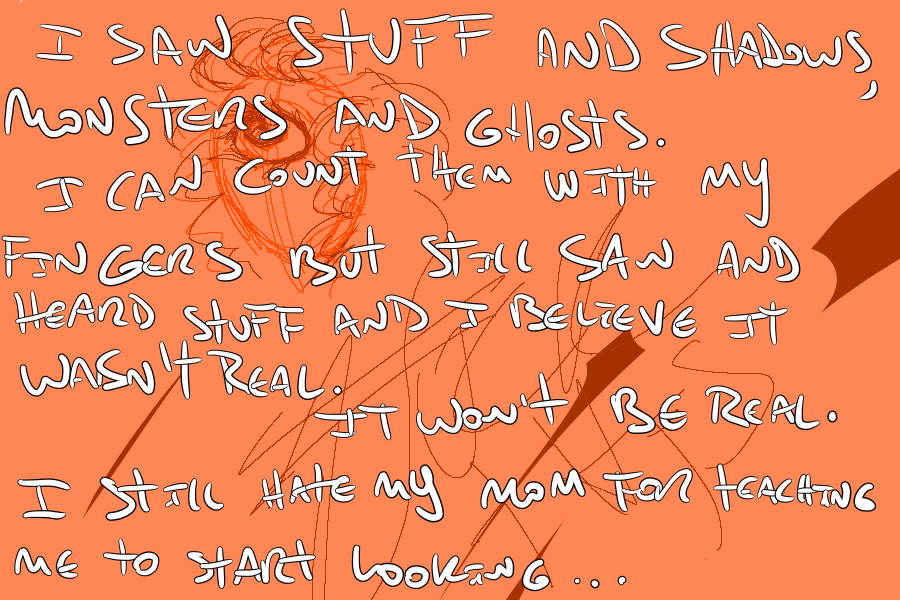 I SAW STUFF AND SHADOWS,
MONSTERS AND GHOSTS.
I CAN COUNT THEM WITH MY
FINGERS BUT STILL SAW AND
HEARD STUFF AND I BELIEVE IT
WASN'T REAL.
IT WON'T BE REAL.
I STILL HATE MY MOM FOR TEACHING
ME TO START LOOKING...